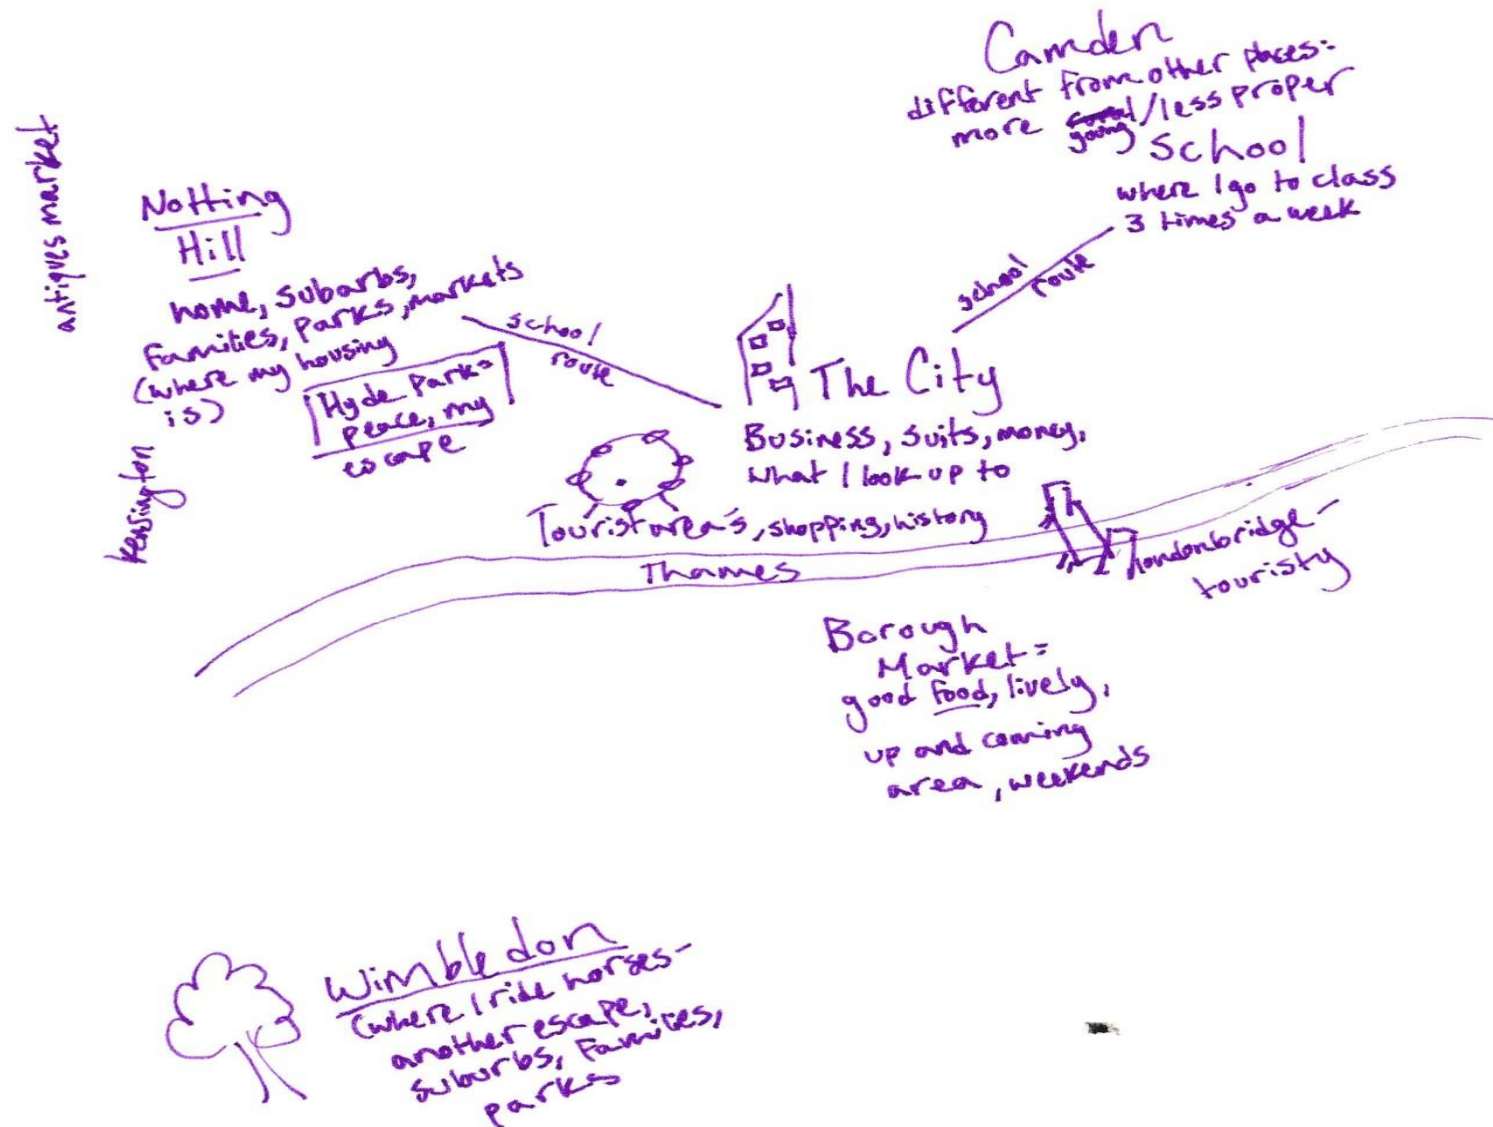 Camden
different from other places:
more young/less proper
School
where I go to class
3 times a week
school
route
antiques market
Notting
Hill
home, subarbs,
families, parks, markets
(where my housing
is)
Hyde Park=
peace, my
escape
Kensington
school
route
The City
Business, suits, money,
what I look up to
Tourist area's, shopping, history
Thames
londonbridge-
touristy
Borough
Market=
good food, lively,
up and coming
area, weekends
Wimbledon
(where I ride horses-
another escape,
suburbs, families,
parks